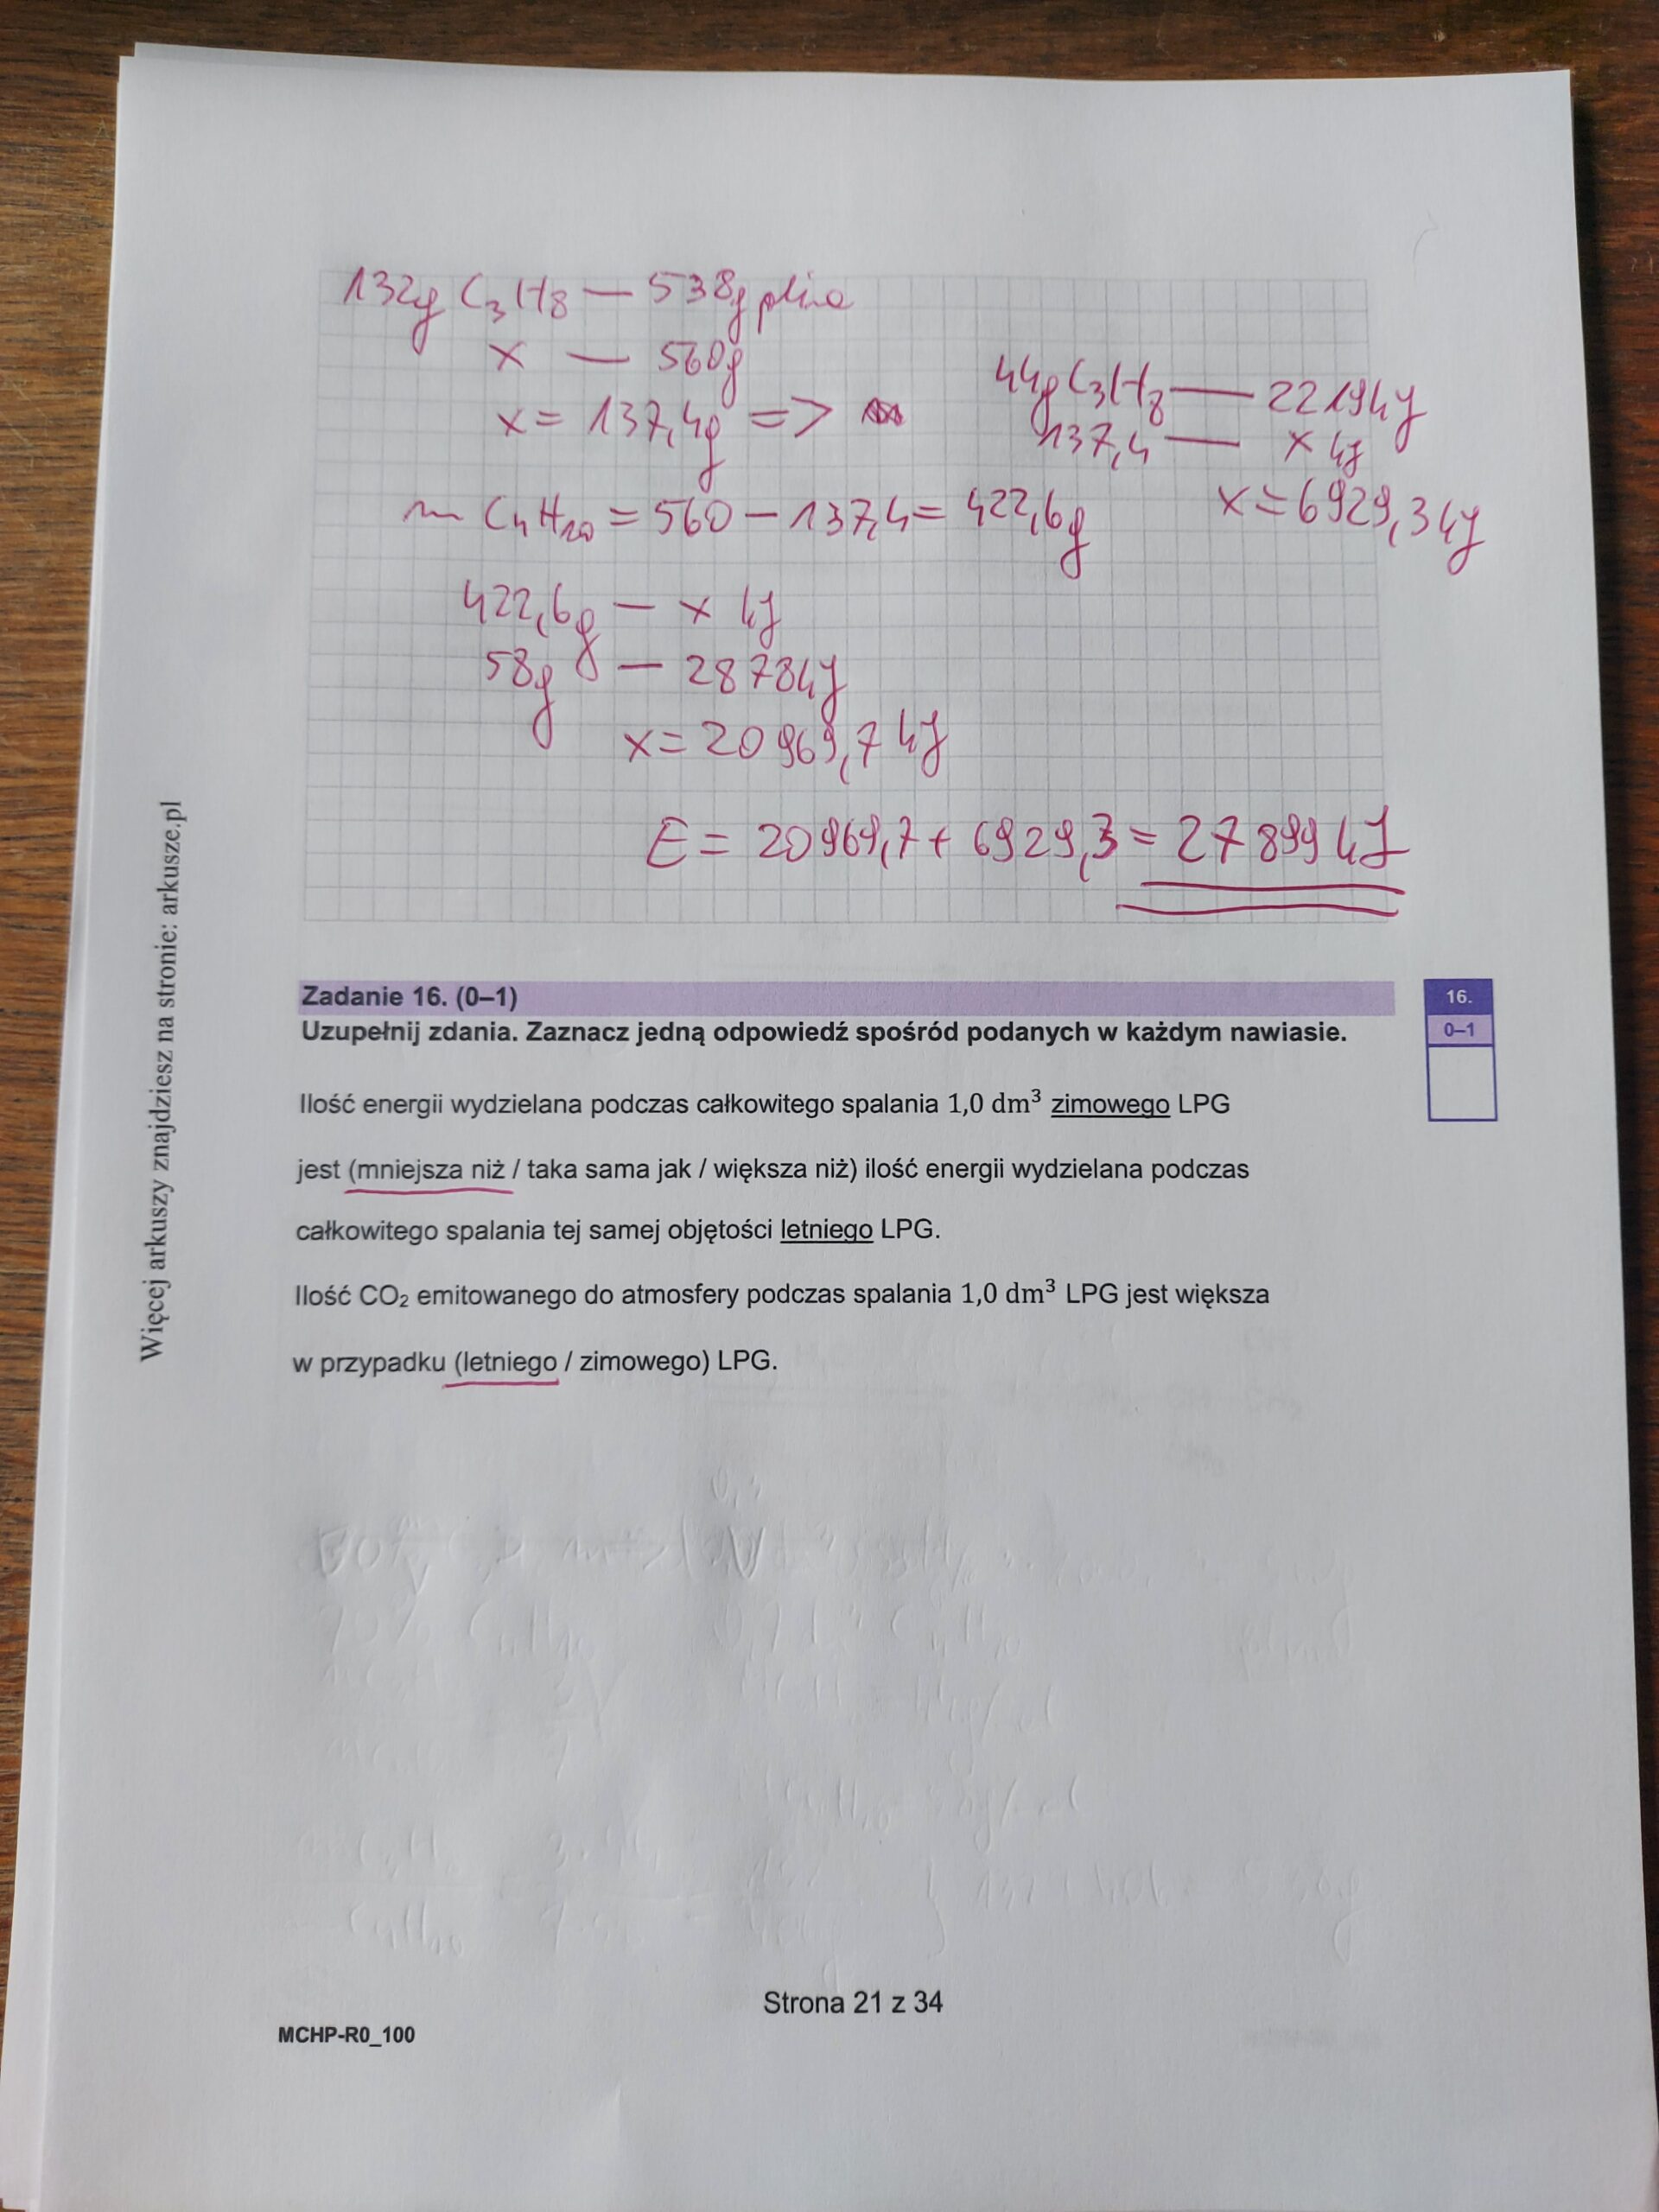 132g C₃H₈ — 538g płina
x — 560g
x = 137,4g =>
44g C₃H₈ — 2219kJ
137,4 — x kJ
x = 6929,3 kJ
m C₄H₁₀ = 560 – 137,4 = 422,6g
422,6g — x kJ
58g — 2878kJ
x = 20969,7 kJ
E = 20969,7 + 6929,3 = 27899 kJ
Więcej arkuszy znajdziesz na stronie: arkusze.pl
Zadanie 16. (0–1)
16.
0–1
Uzupełnij zdania. Zaznacz jedną odpowiedź spośród podanych w każdym nawiasie.
Ilość energii wydzielana podczas całkowitego spalania 1,0 dm³ zimowego LPG
jest (mniejsza niż / taka sama jak / większa niż) ilość energii wydzielana podczas
całkowitego spalania tej samej objętości letniego LPG.
Ilość CO₂ emitowanego do atmosfery podczas spalania 1,0 dm³ LPG jest większa
w przypadku (letniego / zimowego) LPG.
Strona 21 z 34
MCHP-R0_100